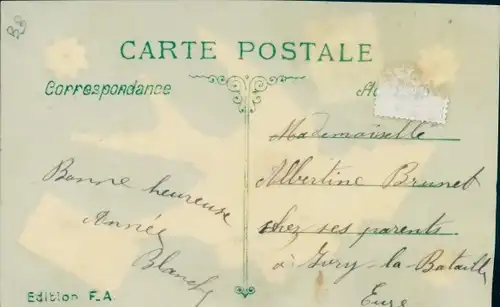 CARTE POSTALE
Correspondance
Mademoiselle
Albertine Brunet
chez ses parents
à Ivry-la-Bataille
Eure
Bonne heureuse
Année
Blanche
Edition F.A.